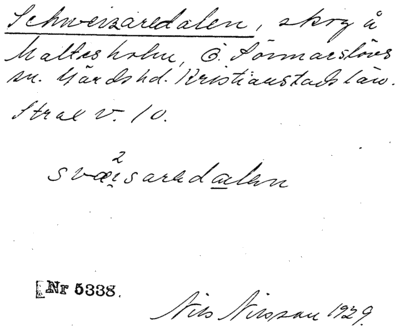 Schweizaredalen, skog å
Maltesholm, Ö. Sönnarslövs
sn. Gärds hd. Kristianstads län.
Strax v. 10.
2
sväisaredalen
Nr 5338.
Nils Nilsson 1929.